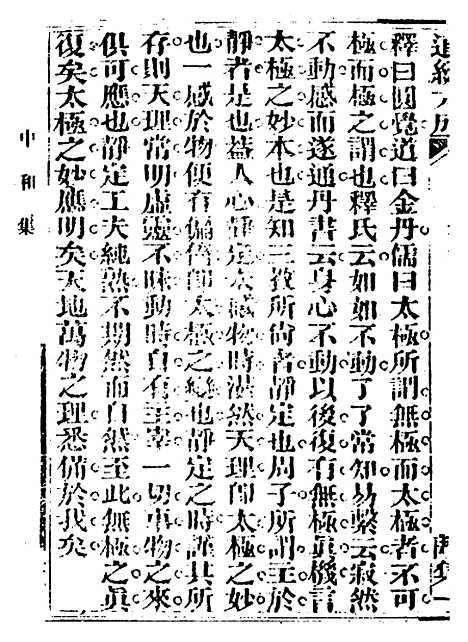 釋曰圓覺道曰金丹儒曰太極所謂無極而太極者不可
極而極之謂也釋氏云如如不動了了常知易繫云寂然
不動感而遂通丹書云身心不動以後復有無極眞機言
太極之妙本也是知三教所尙者靜定也周子所謂主於
靜者是也蓋人心靜定未感物時湛然天理卽太極之妙
也一感於物便有偏倚卽太極之變也靜定之時謹其所
存則天理常明虛靈不昧動時自有主宰一切事物之來
俱可應也靜定工夫純熟不期然而自然至此無極之眞
復矣太極之妙應明矣天地萬物之理悉備於我矣
中和集